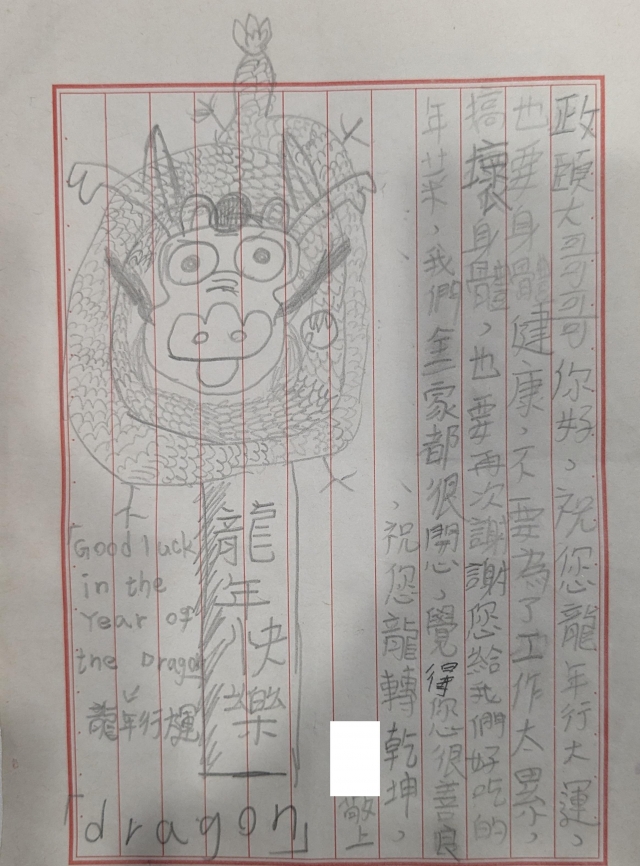 政頤大哥哥你好，祝您龍年行大運，
也要身體健康，不要為了工作太累，
搞壞身體，也要再次謝謝您給我們好吃的
年菜，我們全家都很開心，覺得您很善良
，祝您龍轉乾坤，
敬上
龍年快樂
「Good luck
in the
Year of
the Dragon
龍年行大運
「dragon」